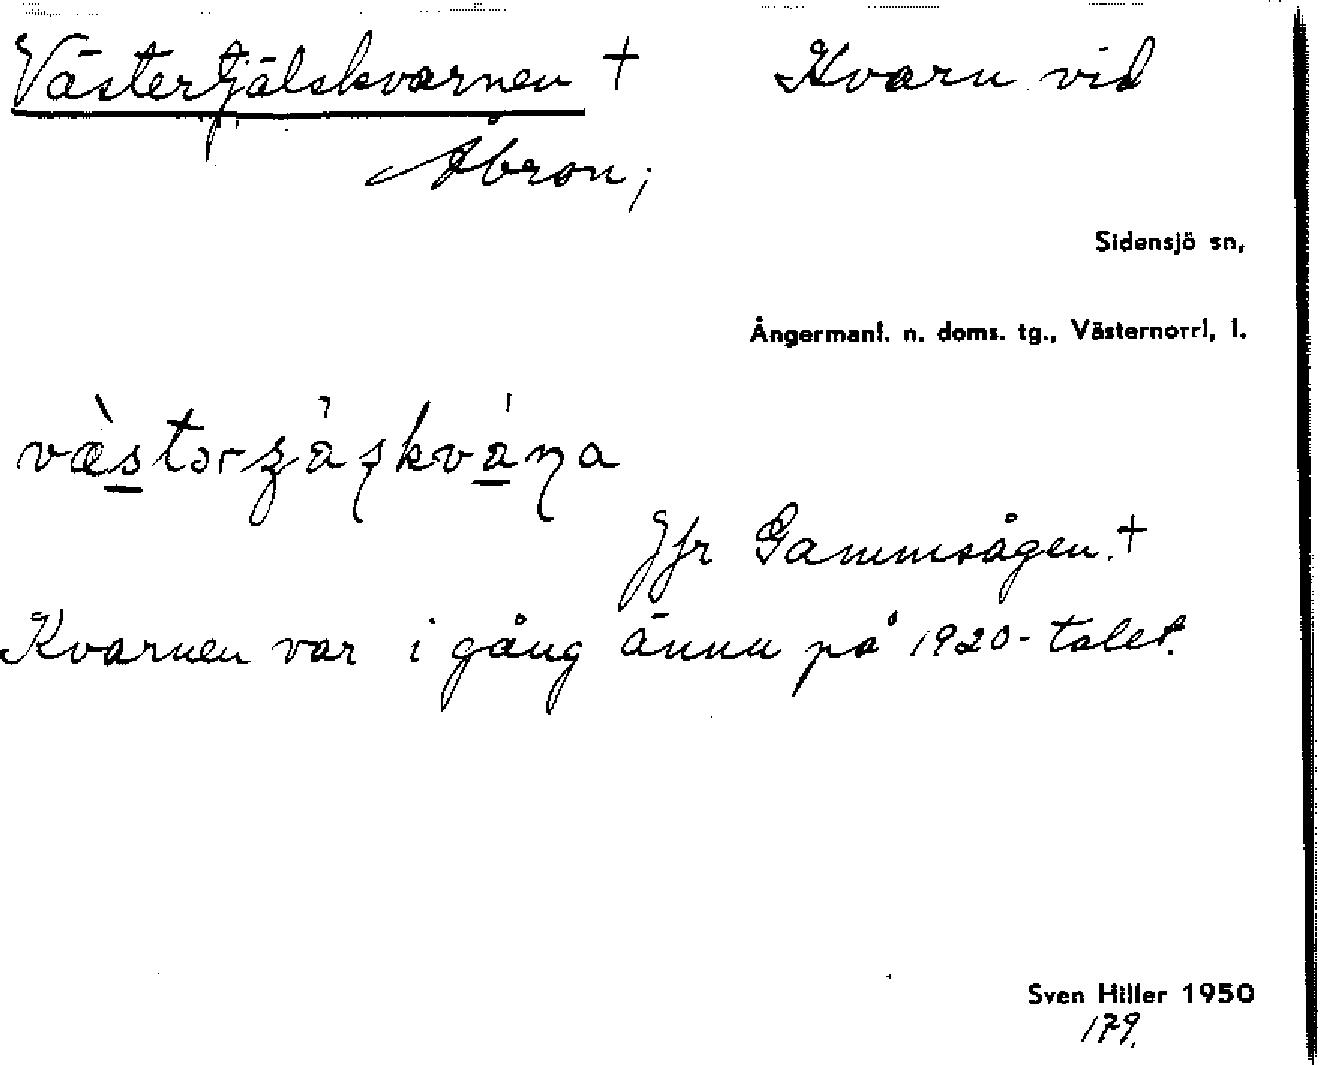 Västertjälskvarnen + Kvarn vid
Åbron;
Sidensjö sn,
Ångermanl. n. doms. tg., Västernorrl, l.
Jfr Gammsågen. +
Kvarnen var i gång ännu på 1920-talet.
Sven Hiller 1950
179.